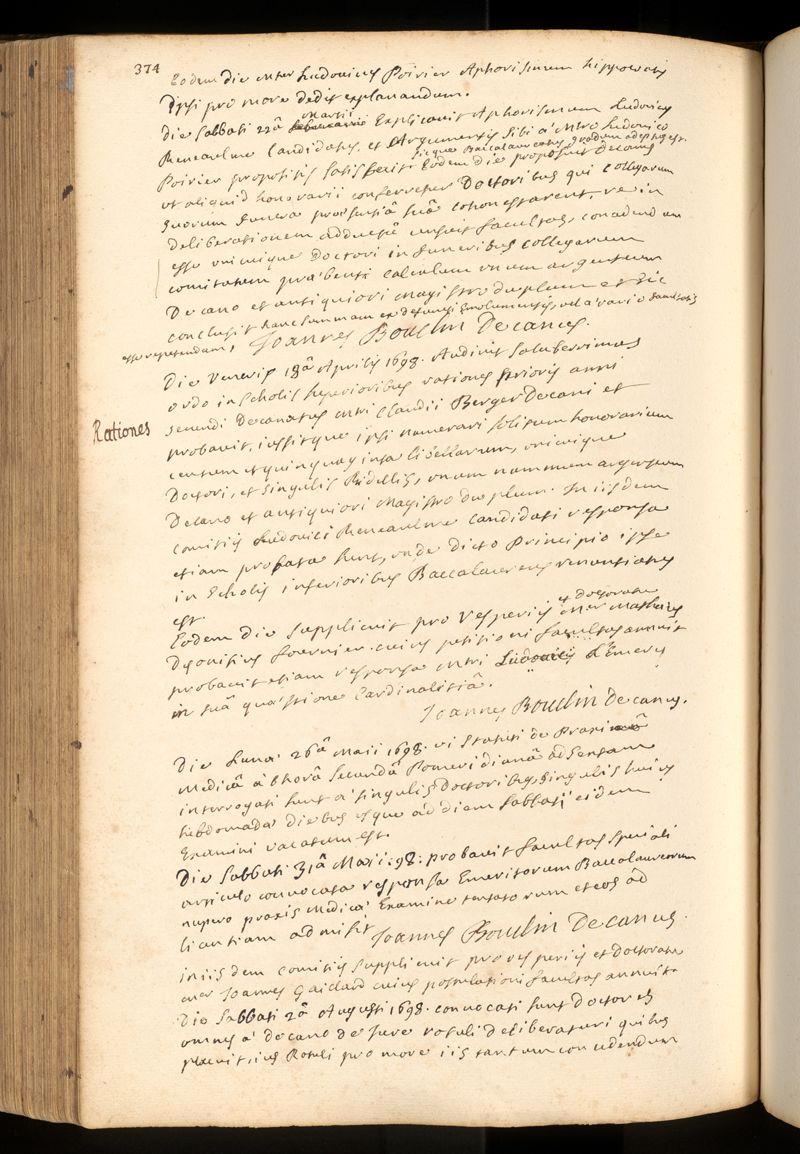 374
Eodem die Mter Ludovicus Poirier Aphorismum hippocratis
ipsi pro more dedit explanandum.
Die Sabbati 22â februarii Martii Explicavit Aphorismum Ludovicus
Reneaulme Candidatus, et Argumentis sibi a Mtro Ludovico
Poirier propositis satisfecit sicque Baccalaureatus gradum adeptus est.
Eodem die proposuit Decanus
ut aliquid honorarii conferretur Doctoribus qui Collegarum
suorum funera præsentiâ suâ cohonestarent, re in
deliberationem adductâ censuit facultas, concedendum
esse unicuique Doctori in funeribus collegarum
comitatum præbenti Calculum unum argenteum
Decano et antiquiori Magistro duplum et sic
conclusit hanc summam ex defuncti Emolumentis, vel ærario facultatis
esse repetendam, Joannes Boudin Decanus.
Die Veneris 18â Aprilis 1698. Audivit saluberrimus
ordo in Scholis superioribus rationes posterioris anni
Rationes
secundi Decanatus Mtri Claudii Berger Decani et
probavit, iussitque ipsi numerari solitum honorarium
centum et quinquaginta libellarum, unicuique
Doctori, et singulis Bidellis, unum nummum argenteum
Decano et antiquiori Magistro duplum. In iisdem
comitiis Ludovici Reneaulme Candidati responsa
etiam probata sunt, unde dicto Principio ipse
in Scholis inferioribus Baccalaureus renuntiatus
est.
Eodem die supplicuit pro Vesperiis et doctoratu Mter Mathæus
Dionisius Fournier cuius petitioni facultas annuit
probavit etiam responsa Mtri Ludovici L'Emery
in suâ quæstione Cardinalitiâ.
Joannes Boudin Decanus.
Die Lunæ 26â Maii 1698. vi Statuti de Praxi
Medicâ ab horâ secundâ Pomeridianâ ad Sextam
interrogati sunt a singulis Doctoribus, singulis huius
hebdomadæ diebus usque ad diem Sabbati eidem
Examini vacatum est.
Die Sabbati 31â Maii. 98. probavit facultas speciali
articulo convocata responsa Emeritorum Baccalaureorum
nupero praxis Medicæ Examine tentatorum et eos ad
licentiam admisit Joannes Boudin Decanus.
in iisdem comitiis supplicuit pro vesperiis et Doctoratu
Mter Joannes Gaillard cuius postulationi facultas annuit.
Die Sabbati 2â Augusti 1698. convocati sunt Doctores
omnes a Decano de Jure rotuli deliberaturi quibus
placuit, ius Rotuli pro more iis tantum concedendum